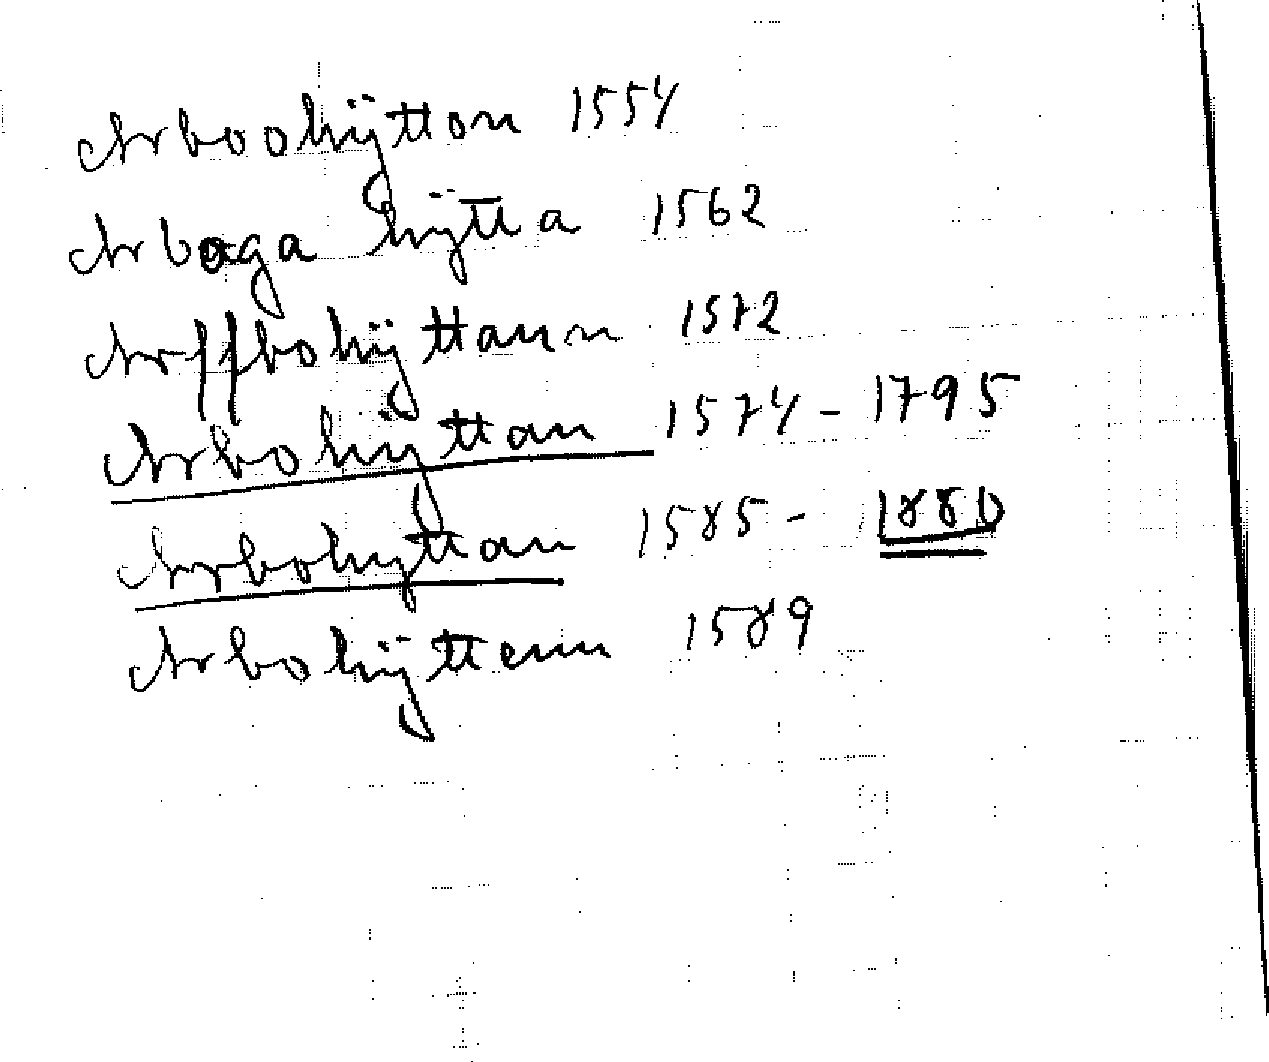 Arboohÿtton 1554
Arboga hÿtta 1562
Arffbohÿttann 1572
Arbohÿttan 1574 - 1795
Arbohyttan 1585 - 1880
Arbohÿttenn 1589